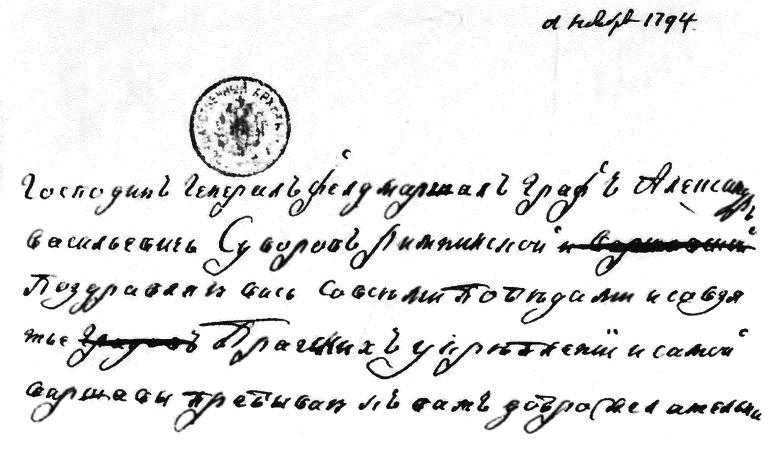 ноября 1794
Господинъ Генералъ фелдмаршалъ Графъ Александръ
васильевичь Суворовъ Римникской и Варшавский
Поздравляю васъ со всеми победами и со взя
тье градовъ Прагскихъ укрепленiй и самой
варшавы пребываю къ вамъ доброжелательна